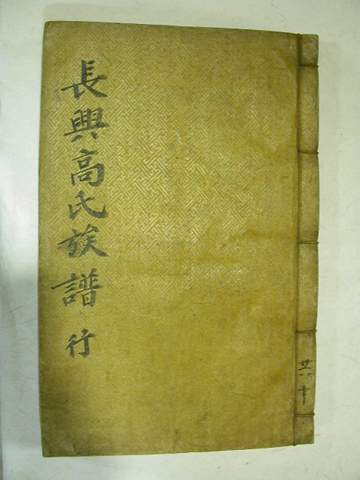 長興高氏族譜 行
共十